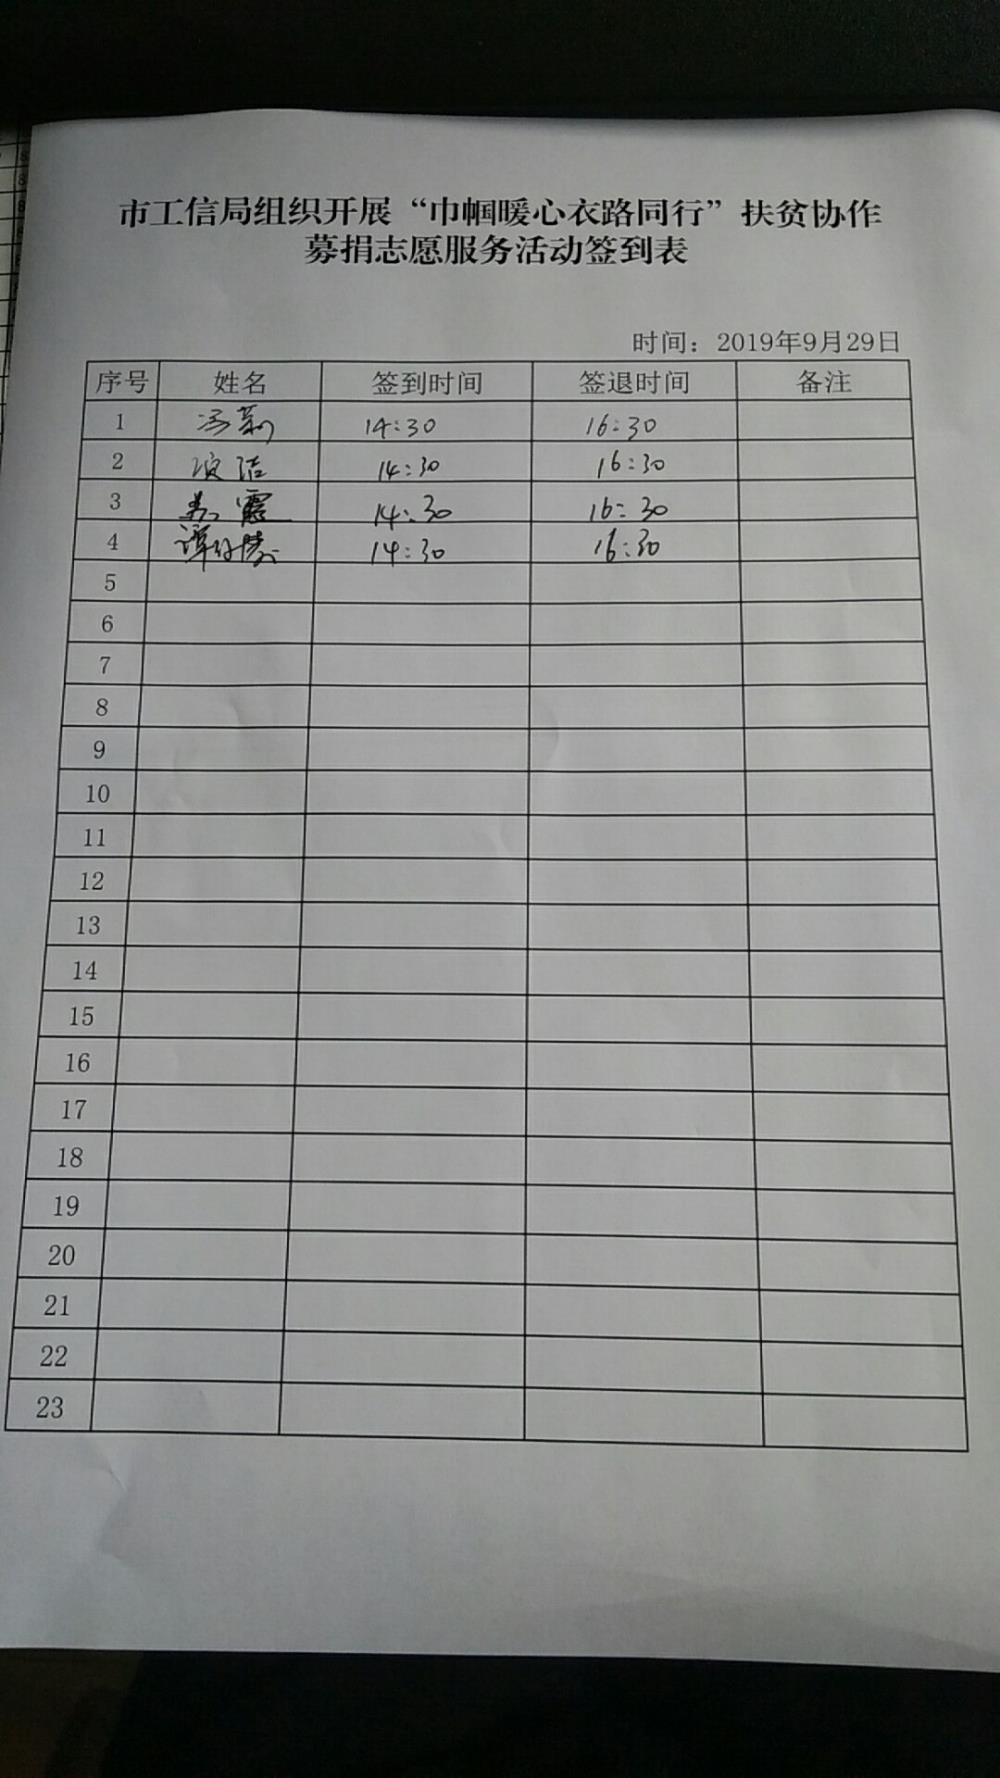 市工信局组织开展“巾帼暖心衣路同行”扶贫协作
募捐志愿服务活动签到表
时间：2019年9月29日
序号 姓名 签到时间 签退时间 备注
1 冯莉 14:30 16:30
2 14:30 16:30
3 霞 14:30 16:30
4 谭 14:30 16:30
5
6
7
8
9
10
11
12
13
14
15
16
17
18
19
20
21
22
23